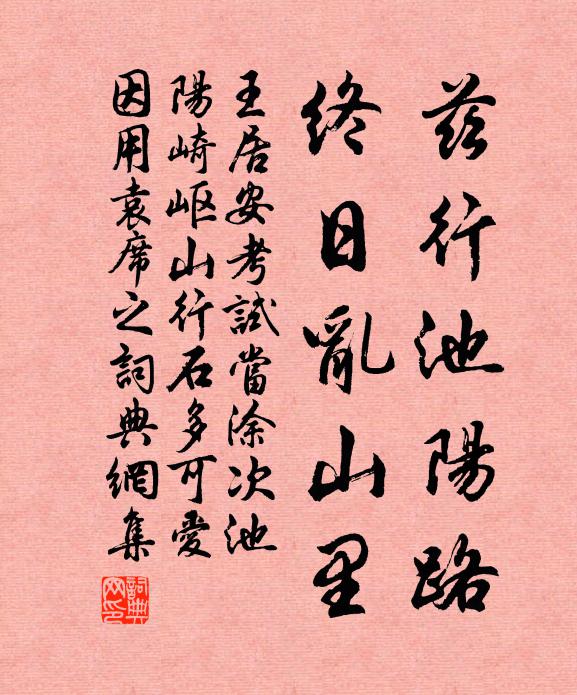 茲行池陽路
終日亂山里
王居安考試當涂次池
陽崎岖山行石多可愛
因用袁席之詞典網集
詞典网印